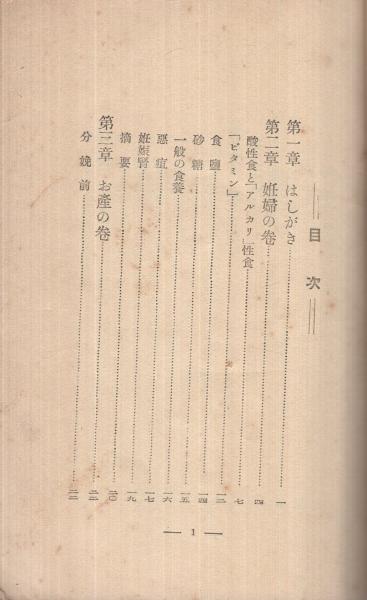 目次
第一章 はしがき 一
第二章 妊婦の卷 四
酸性食と「アルカリ」性食 七
「ビタミン」 一二
食鹽 一四
砂糖 一五
一般の食養 一六
惡疽 一七
妊娠腎 一九
摘要 二〇
第三章 お產の卷 二二
分娩前 二二
— 1 —